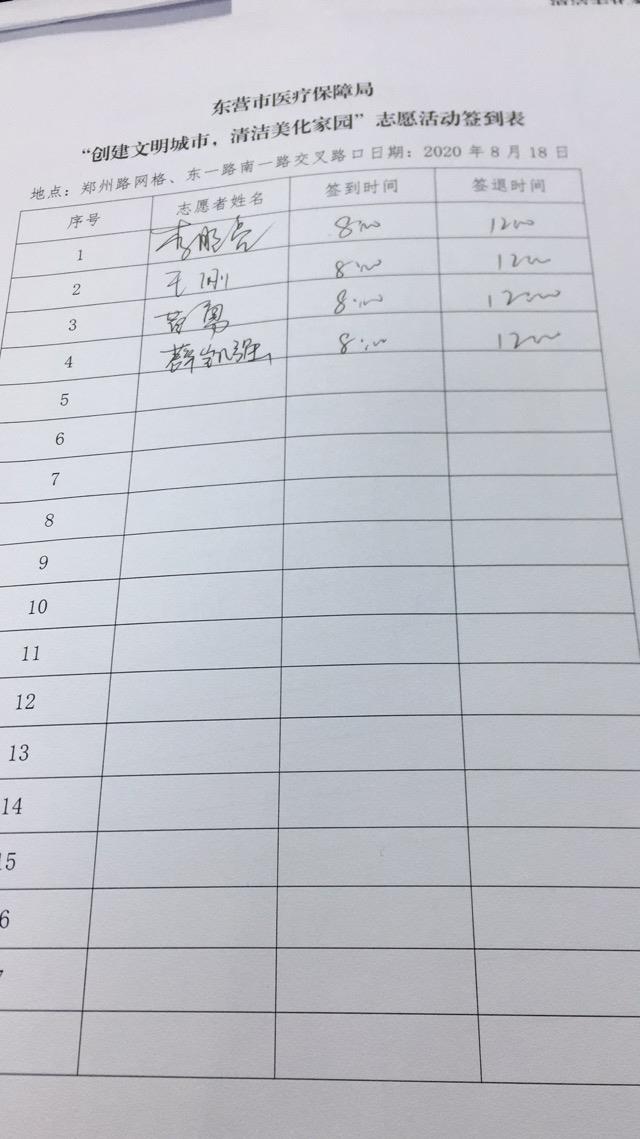 东营市医疗保障局
“创建文明城市，清洁美化家园”志愿活动签到表
地点：郑州路网格、东一路南一路交叉路口日期：2020 年 8 月 18 日
序号 志愿者姓名 签到时间 签退时间
1 李明亮 8:00 1200
2 王刚 8:00 1200
3 苗勇 8:00 12:00
4 薛凯强 8:00 1200
5
6
7
8
9
10
11
12
13
14
15
6
7